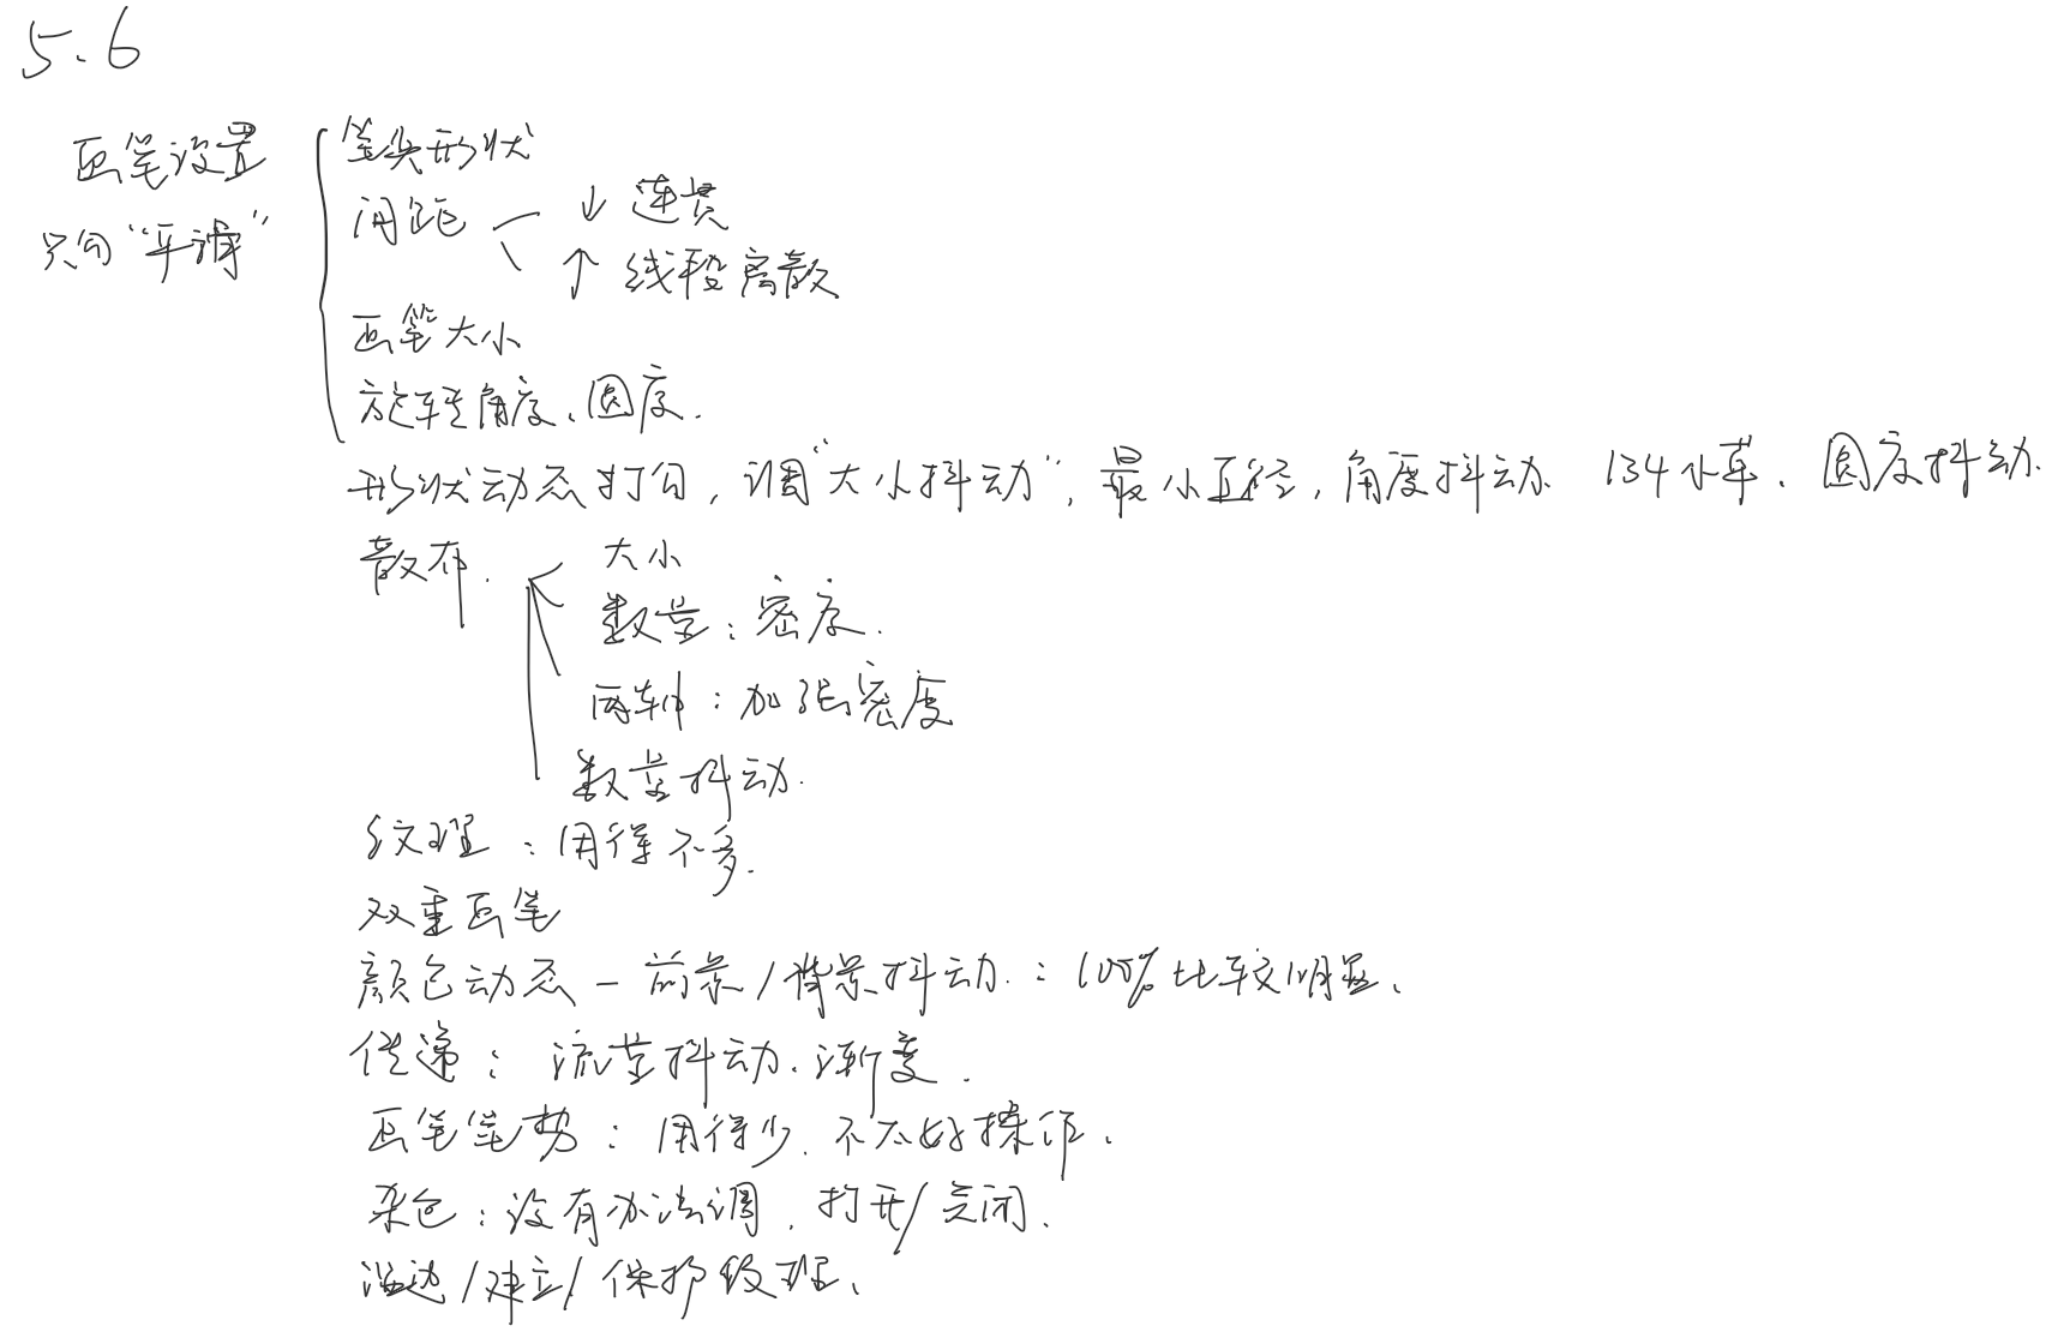 5.6
画笔设置
只勾“平滑”
笔尖形状
间距
↓ 连贯
↑ 线段离散
画笔大小
旋转角度、圆度.
形状动态打勾，调“大小抖动”，最小直径，角度抖动、134水草、圆度抖动.
散布.
大小
数量：密度.
两轴：加强密度
数量抖动.
纹理：用得不多.
双重画笔
颜色动态－前景/背景抖动：100%比较明显、
传递：流量抖动、渐变.
画笔笔势：用得少. 不太好操作.
杂色：没有办法调，打开/关闭.
湿边/建立/保护纹理、